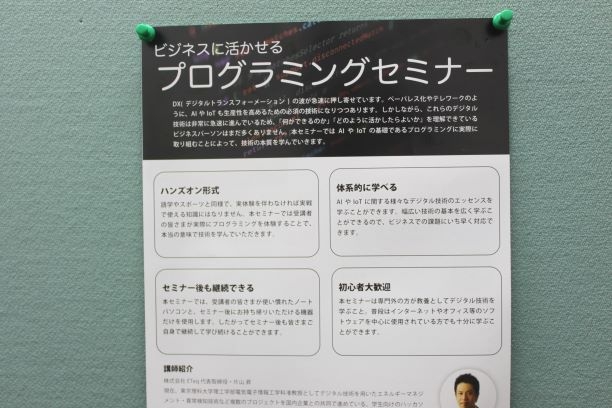 ビジネスに活かせる
プログラミングセミナー
DX( デジタルトランスフォーメーション ) の波が急速に押し寄せています。ペーパレス化やテレワークのよ
うに、AI や IoT も生産性を高めるための必須の技術になりつつあります。しかしながら、これらのデジタル
技術は非常に急速に進んでいるため、「何ができるのか」「どのように活かしたらよいか」を理解できている
ビジネスパーソンはまだ多くありません。本セミナーでは AI や IoT の基礎であるプログラミングに実際に
取り組むことによって、技術の本質を学んでいきます。
ハンズオン形式
語学やスポーツと同様で、実体験を伴わなければ実戦
で使える知識にはなりません。本セミナーでは受講者
の皆さまが実際にプログラミングを体験することで、
本当の意味で技術を学んでいただきます。
体系的に学べる
AI や IoT に関する様々なデジタル技術のエッセンスを
学ぶことができます。幅広い技術の基本を広く学ぶこ
とができるので、ビジネスでの課題にいち早く対応で
きます。
セミナー後も継続できる
本セミナーでは、受講者の皆さまが使い慣れたノート
パソコンと、セミナー後にお持ち帰りいただける機器
だけを使用します。したがってセミナー後も皆さまご
自身で継続して学び続けることができます。
初心者大歓迎
本セミナーは専門外の方が教養としてデジタル技術を
学ぶこと、普段はインターネットやオフィス等のソフ
トウェアを中心に使用されている方でも十分に学ぶこ
とができます。
講師紹介
株式会社 ETeq 代表取締役・片山 昇
現在、東京理科大学理工学部電気電子情報工学科准教授としてデジタル技術を用いたエネルギーマネジ
メント・異常検知技術など複数のプロジェクトを国内企業との共同で進めている。学生向けのハッカソ